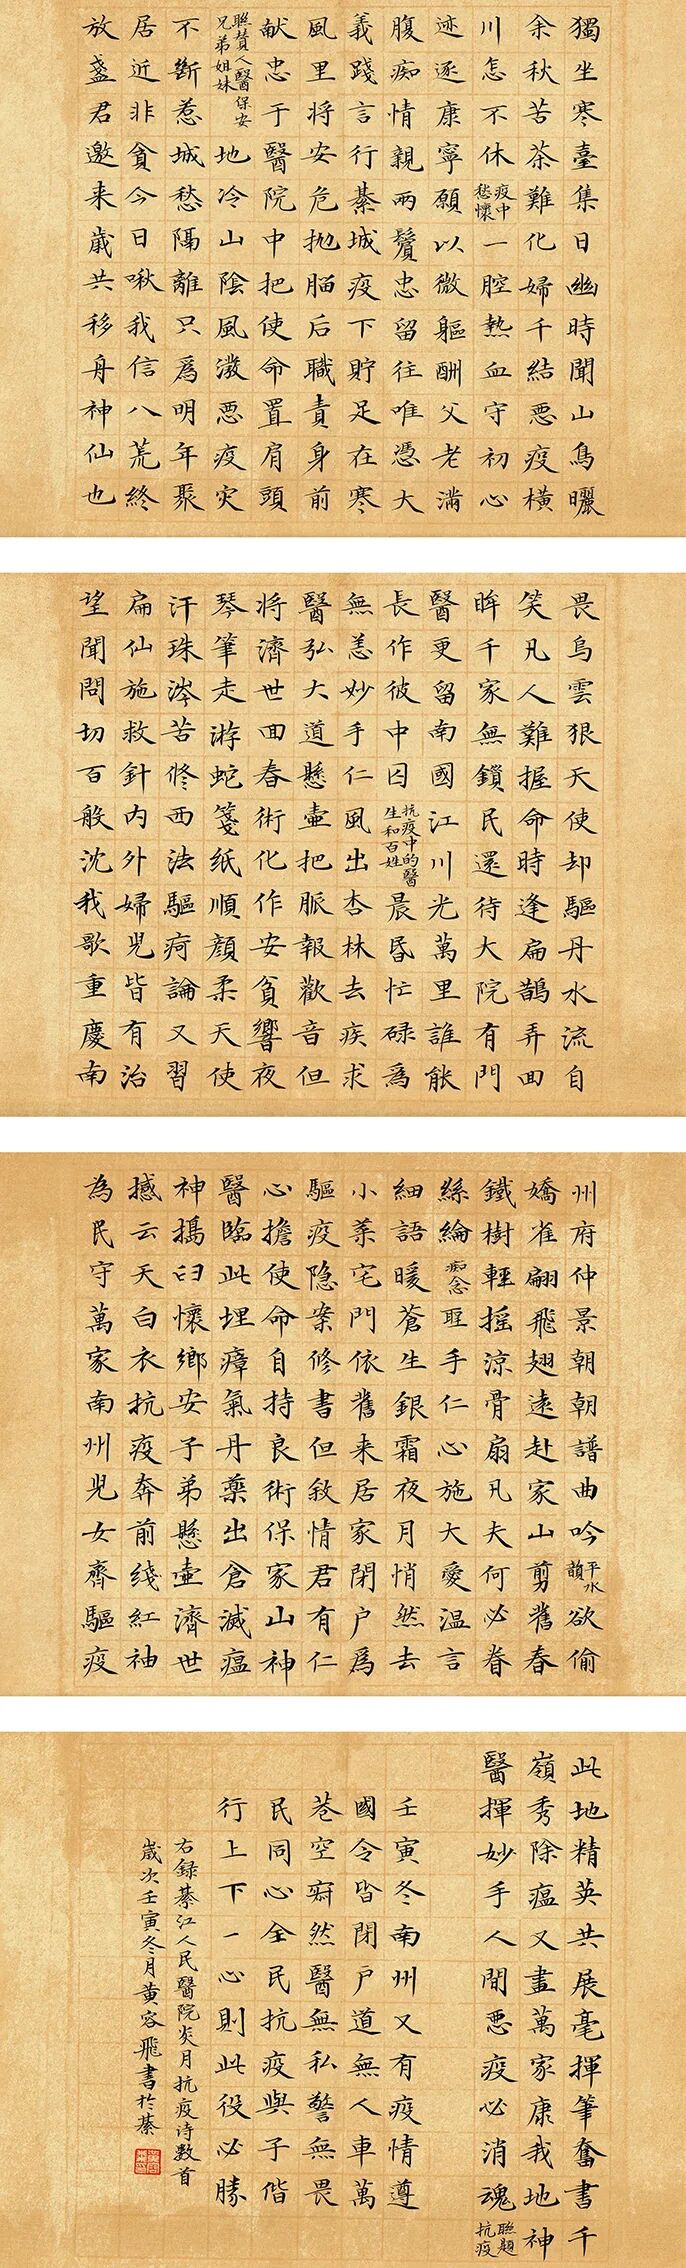 獨坐寒臺集日幽時聞山鳥曬
余秋苦茶難化婦千結惡疫橫
川怎不休疫中愁懷一腔熱血守初心
迹逐康寧願以微軀酬父老滿
腹痴情親兩鬢忠留往唯憑大
義踐言行綦城疫下貯足在寒
風里将安危抛脑后職責身前
献忠于醫院中把使命置肩頭
聯贊人醫保安兄弟姐妹地冷山陰風潑惡疫灾
不斷惹城愁隔離只為明年聚
居近非貪今日啾我信八荒終
放盞君邀来歲共移舟神仙也
畏烏雲狠天使却驅丹水流自
笑凡人難握命時逢扁鵲弄回
眸千家無鎖民還待大院有門
醫更留南國江川光萬里誰能
長作彼中囚抗疫中的醫生和百姓晨昏忙碌為
無恙妙手仁風出杏林去疾求
醫弘大道懸壷把脈報歡音但
将濟世回春術化作安貧響夜
琴筆走游蛇箋纸順顔柔天使
汗珠涔苦修西法驅疴論又習
扁仙施救針内外婦児皆有治
望聞問切百般沈我歌重慶南
州府仲景朝朝譜曲吟平水韻欲偷
嬌雀翩飛翅遠赴家山剪舊春
鐵樹輕摇涼骨扇凡夫何必眷
絲綸痴念聖手仁心施大愛温言
細語暖蒼生銀霜夜月悄然去
小葇宅門依舊来居家閉户為
驅疫隐案修書但敘情君有仁
心擔使命自持良術保家山神
醫臨此埋瘴氣丹藥出倉滅瘟
神搗臼懷鄉安子弟懸壷濟世
撼云天白衣抗疫奔前綫紅袖
為民守萬家南州児女齊驅疫
此地精英共展毫揮筆奮書千
嶺秀除瘟又畫萬家康我地神
醫揮妙手人間惡疫必消魂聯題抗疫
壬寅冬南州又有疫情遵
國令皆閉户道無人車萬
巷空寂然醫無私警無畏
民同心全民抗疫與子偕
行上下一心則此役必勝
右録綦江人民醫院炎月抗疫诗數首
歲次壬寅冬月黄容飛書於綦